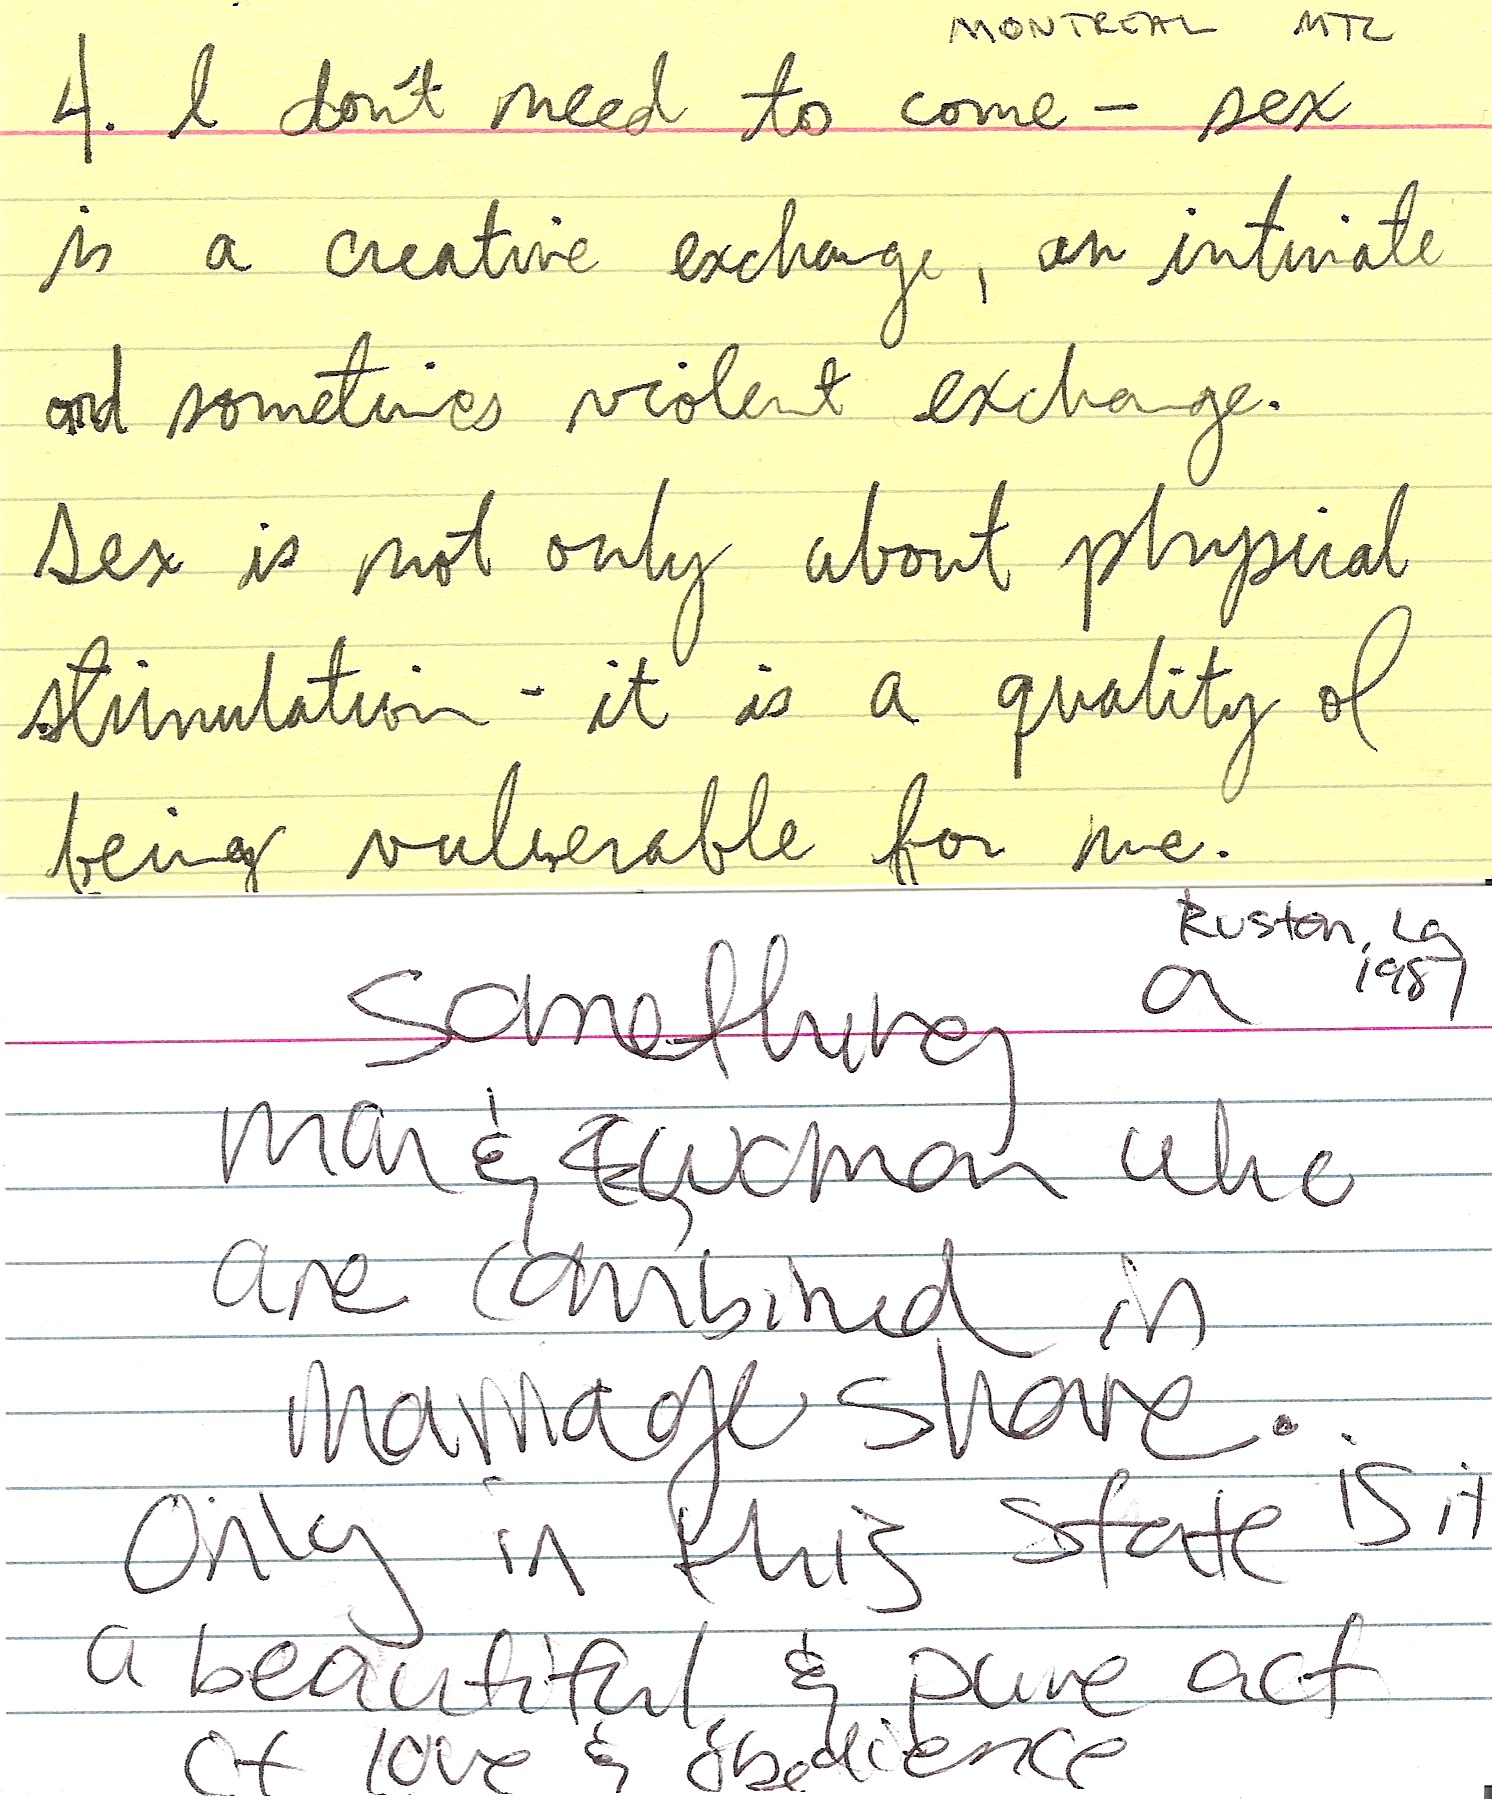 MONTREAL MTL
4. I don't need to come – sex
is a creative exchange, an intimate
and sometimes violent exchange.
Sex is not only about physical
stimulation - it is a quality of
being vulnerable for me.
Ruston, La
1987
Something a
man & & woman who
are combined in
marriage share.
Only in this state is it
a beautiful & pure act
of love & obedience